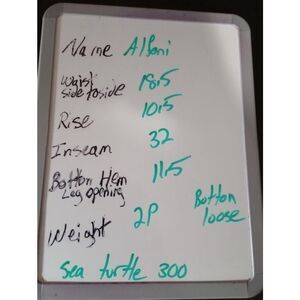 Name Alfani
Waist side to side 18.5
Rise 10.5
Inseam 32
Bottom Hem Leg opening 11.5
Weight 2P Bottom loose
Sea turtle 300